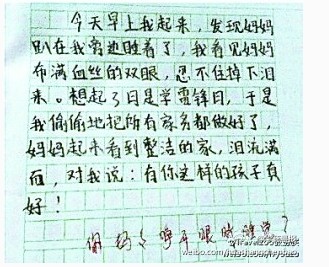 今天早上我起来,发现妈妈
趴在我旁边睡着了,我看见妈妈
布满血丝的双眼,忍不住掉下泪
来。想起了日是学雷锋日,于是
我偷偷地把所有家务都做好了,
妈妈起来看到整洁的家,泪流满
面,对我说:有你这样的孩子真
好!
你妈妈睁开眼睛睡觉?
weibo.com/